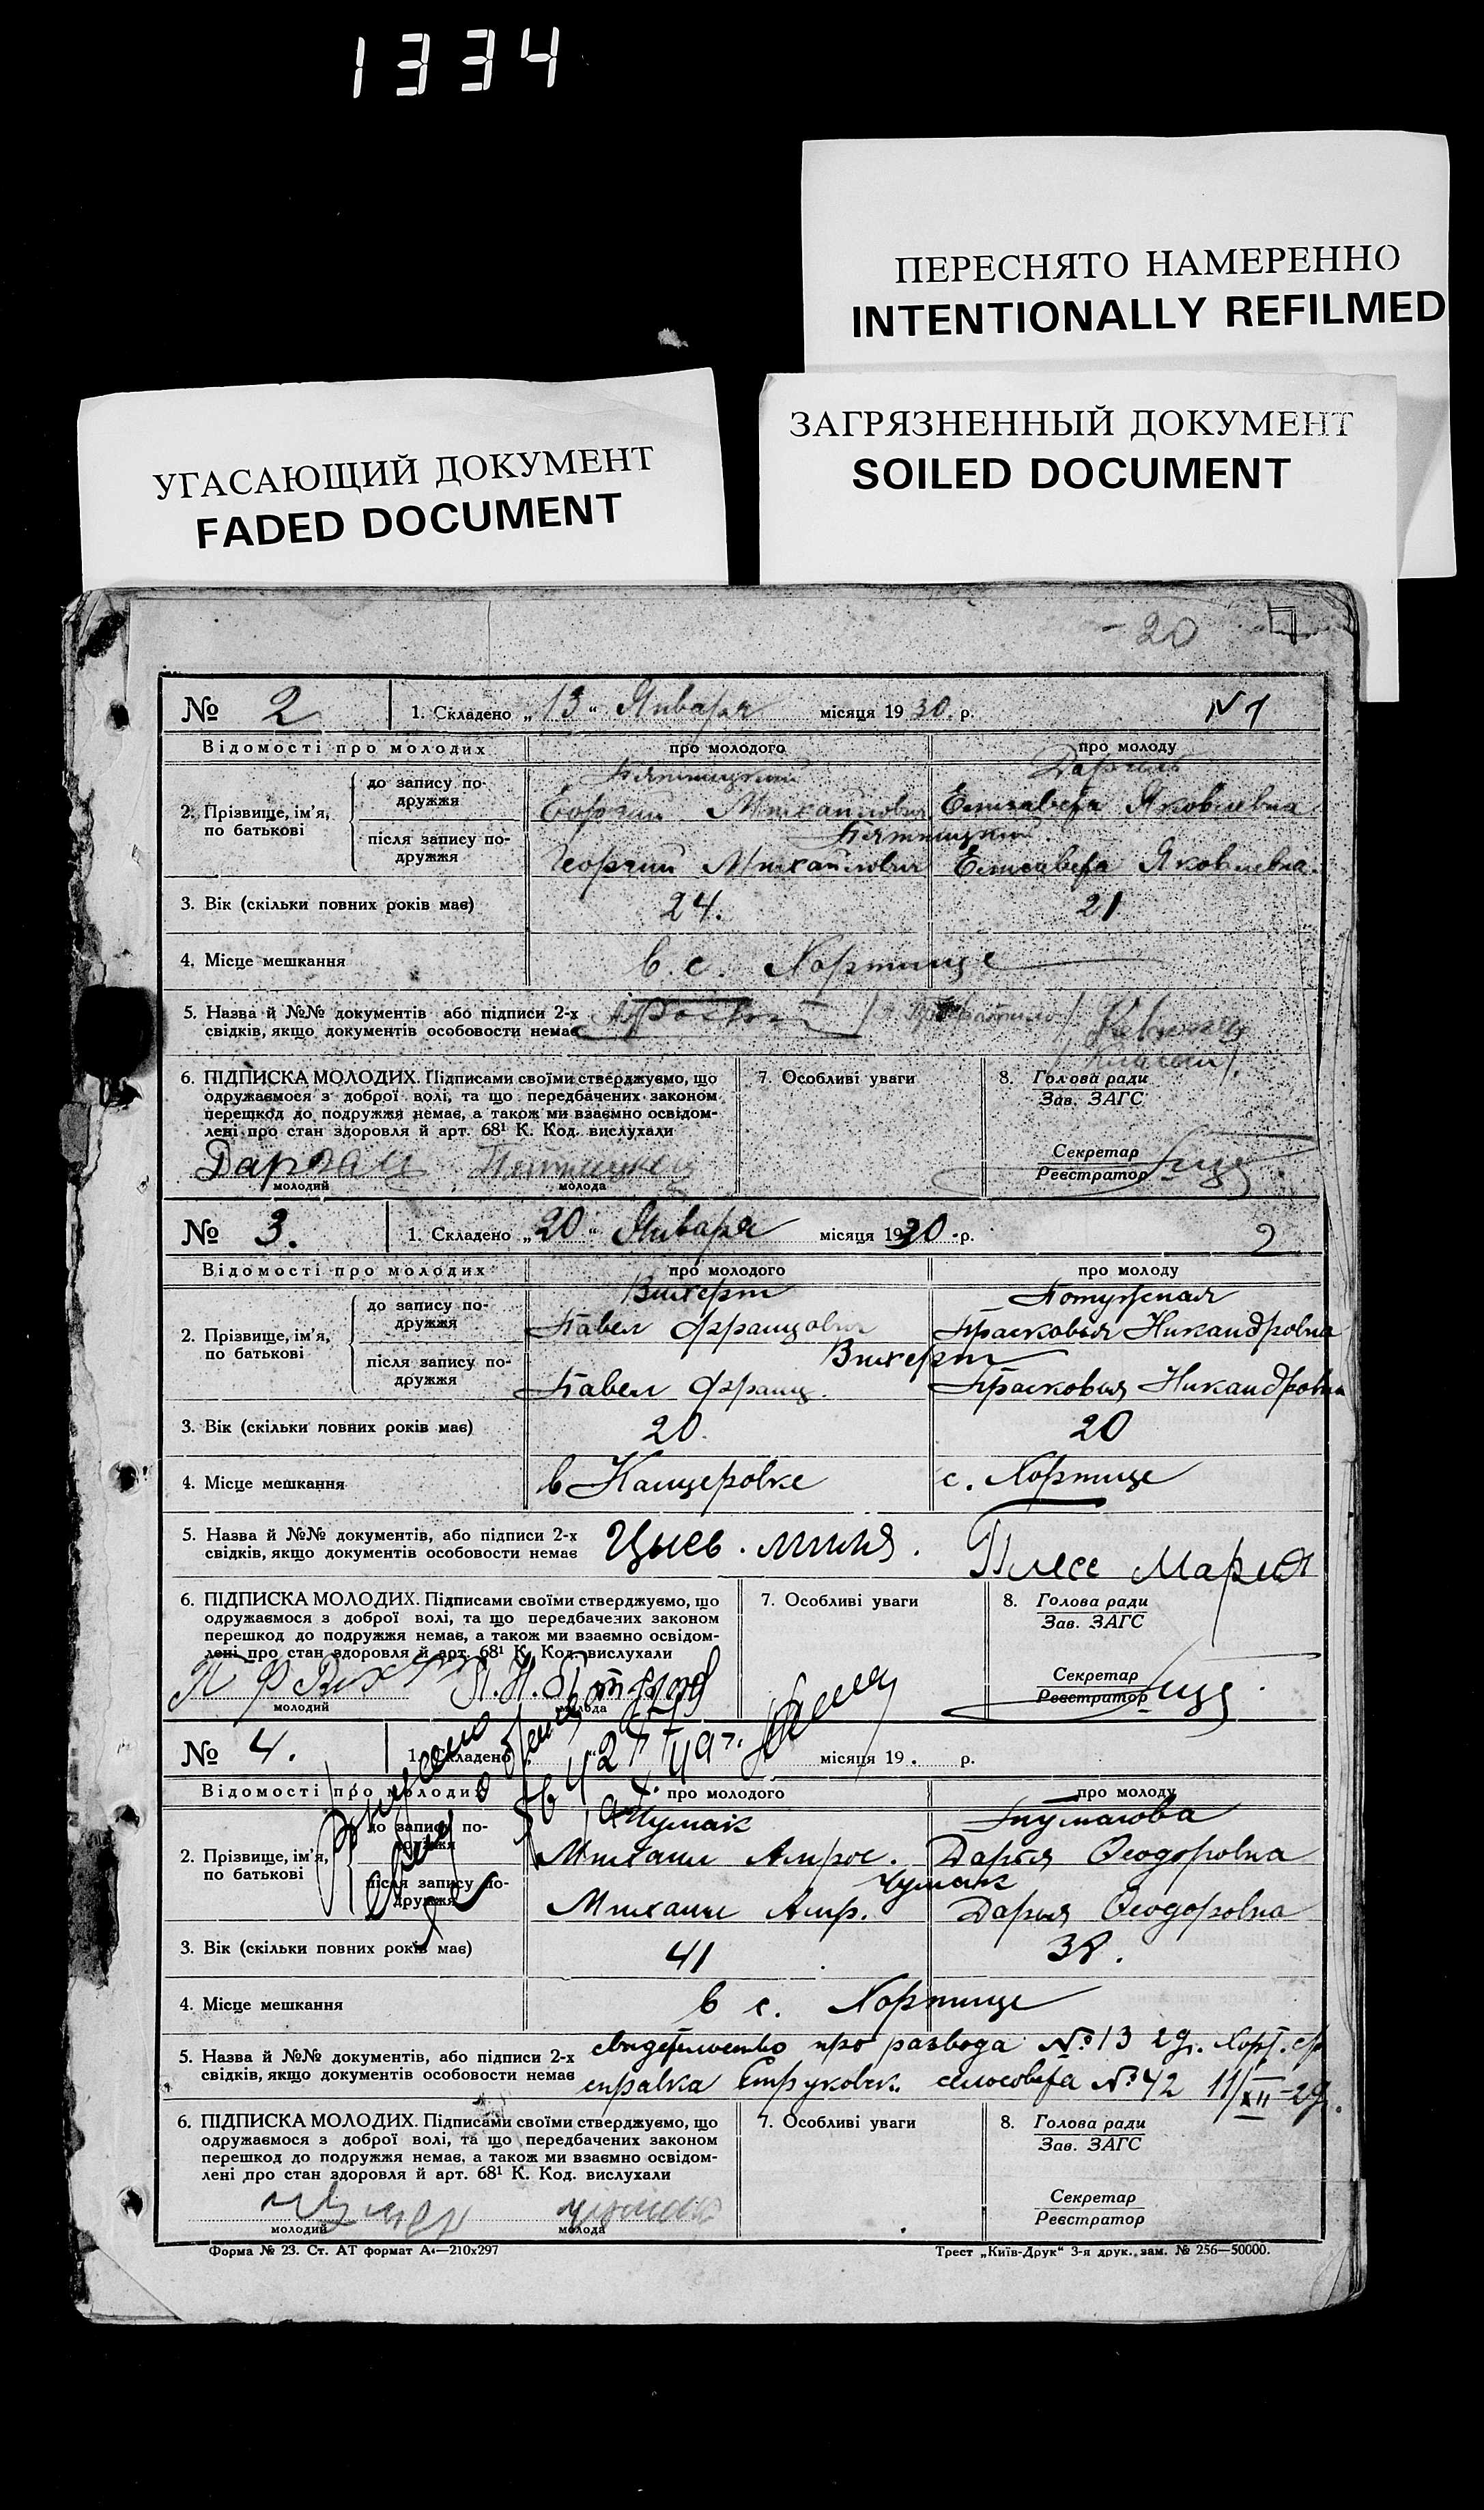 1334
ПЕРЕСНЯТО НАМЕРЕННО
INTENTIONALLY REFILMED
УГАСАЮЩИЙ ДОКУМЕНТ
FADED DOCUMENT
ЗАГРЯЗНЕННЫЙ ДОКУМЕНТ
SOILED DOCUMENT
20
№ 2 1. Складено „13“ Января місяця 1930 р. N 1
Відомості про молодих про молодого про молоду
2. Прізвище, ім’я, по батькові
до запису подружжя
Пятницкий
Михайлович Елизавета Яковлевна
після запису по-
дружжя
Пятницкий
Георгий Михайлович Елисавета Яковлевна
3. Вік (скільки повних років має) 24. 21
4. Місце мешкання в с. Хортице
5. Назва й №№ документів або підписи 2-х
свідків, якщо документів особовости немає
6. ПІДПИСКА МОЛОДИХ. Підписами своїми стверджуємо, що
одружаємося з доброї волі, та що передбачених законом
перешкод до подружжя немає, а також ми взаємно освідом-
лені про стан здоровля й арт. 68¹ К. Код. вислухали
молодий молода
7. Особливі уваги
8. Голова ради
Зав. ЗАГС
Секретар
Реєстратор
№ 3. 1. Складено „20“ Января місяця 1930 р. 2
Відомості про молодих про молодого про молоду
2. Прізвище, ім’я,
по батькові
до запису по-
дружжя
Вихерт Потужная
Павел Францович Прасковья Никандровна
після запису по-
дружжя
Вихерт
Павел Франц. Прасковья Никандровна
3. Вік (скільки повних років має) 20. 20
4. Місце мешкання в Канцеровке с. Хортице
5. Назва й №№ документів, або підписи 2-х
свідків, якщо документів особовости немає
Мария
6. ПІДПИСКА МОЛОДИХ. Підписами своїми стверджуємо, що
одружаємося з доброї волі, та що передбачених законом
перешкод до подружжя немає, а також ми взаємно освідом-
лені про стан здоровля й арт. 68¹ К. Код. вислухали
молодий молода
7. Особливі уваги
8. Голова ради
Зав. ЗАГС
Секретар
Реєстратор
№ 4. 1. Складено місяця 19 . р.
Відомості про молодих про молодого про молоду
2. Прізвище, ім’я,
по батькові
до запису по-
дружжя
Чумак
Михаил Амрос. Дарья Феодоровна
після запису по-
дружжя
Чумак
Михаил Амр. Дарья Феодоровна
3. Вік (скільки повних років має) 41 38.
4. Місце мешкання в с. Хортице
5. Назва й №№ документів, або підписи 2-х
свідків, якщо документів особовости немає
свидетельство про развода № 13 29г. Хорт. с/р
справка сельсовета № 42 11/XII-29г.
6. ПІДПИСКА МОЛОДИХ. Підписами своїми стверджуємо, що
одружаємося з доброї волі, та що передбачених законом
перешкод до подружжя немає, а також ми взаємно освідом-
лені про стан здоровля й арт. 68¹ К. Код. вислухали
молодий молода
7. Особливі уваги
8. Голова ради
Зав. ЗАГС
Секретар
Реєстратор
Форма № 23. Ст. АТ формат А₄—210х297
Трест „Київ-Друк“ 3-я друк. зам. № 256—50000.